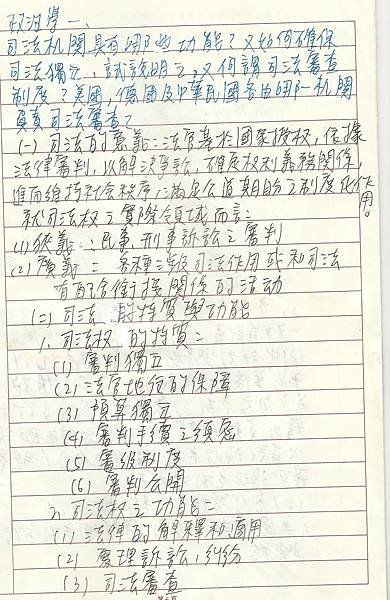 政治學一、
司法机関具有哪些功能？又如何確保
司法獨立，試說明之，又何謂司法審查
制度？美國，德國及中華民國各由哪一机関
負責司法審查？
(一) 司法的意義：法官基於國家授权，依據
法律審判，以解決爭訟，確定权利義務関係，
進而維持社会秩序，滿足公道期盼之制度化作用。
就司法权之實際領域而言：
(1) 狹義：民事、刑事訴訟之審判
(2) 廣義：各種涉及司法作用或和司法
有配合銜接関係的活動
(二) 司法的特質與功能
1. 司法权的特質：
(1) 審判獨立
(2) 法官地位的保障
(3) 預算獨立
(4) 審判手續之須愿
(5) 審級制度
(6) 審判公開
2. 司法权之功能：
(1) 法律的解釋和適用
(2) 受理訴訟，糾紛
(3) 司法審查